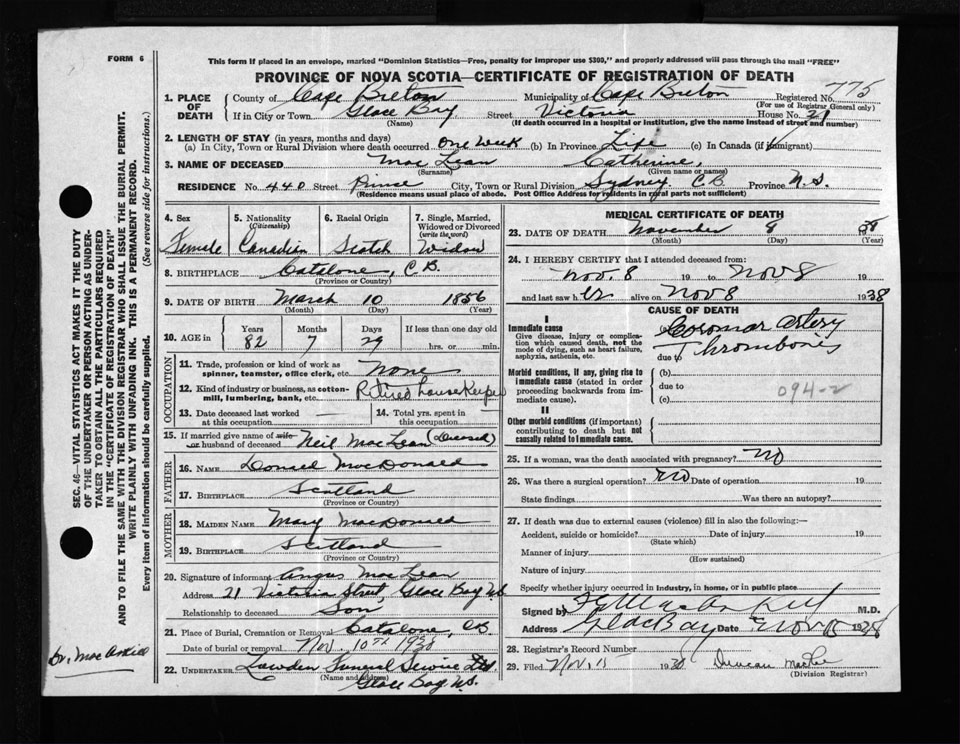 FORM 6
This form if placed in an envelope, marked "Dominion Statistics—Free, penalty for improper use $300," and properly addressed will pass through the mail "FREE"
PROVINCE OF NOVA SCOTIA—CERTIFICATE OF REGISTRATION OF DEATH
1. PLACE OF DEATH County of Cape Breton Municipality of Cape Breton Registered No. 775
(For use of Registrar General only)
If in City or Town Glace Bay Street Victoria House No. 21
(Name) (If death occurred in a hospital or institution, give the name instead of street and number)
2. LENGTH OF STAY (in years, months and days)
(a) In City, Town or Rural Division where death occurred One Week (b) In Province Life (c) In Canada (if immigrant)
3. NAME OF DECEASED Mac Lean Catherine,
(Surname) (Given name or names)
RESIDENCE No. 440 Street Prince City, Town or Rural Division Sydney. C B Province N.S.
(Residence means usual place of abode. Post Office Address for residents in rural parts not sufficient)
4. Sex Female
5. Nationality (Citizenship) Canadian
6. Racial Origin Scotch
7. Single, Married, Widowed or Divorced (write the word) Widow
8. BIRTHPLACE Catalone, C.B.
(Province or Country)
9. DATE OF BIRTH March 10 1856
(Month) (Day) (Year)
10. AGE in Years 82 Months 7 Days 29 If less than one day old hrs. or min.
OCCUPATION
11. Trade, profession or kind of work as spinner, teamster, office clerk, etc. None
12. Kind of industry or business, as cotton-mill, lumbering, bank, etc. Retired housekeeper
13. Date deceased last worked at this occupation —
14. Total yrs. spent in this occupation
15. If married give name of wife or husband of deceased Neil MacLean (Deceased)
FATHER
16. NAME Donald MacDonald
17. BIRTHPLACE Scotland
(Province or Country)
MOTHER
18. MAIDEN NAME Mary MacDonald
19. BIRTHPLACE Scotland
(Province or Country)
20. Signature of informant Angus MacLean
Address 21 Victoria Street, Glace Bay N.S.
Relationship to deceased Son
21. Place of Burial, Cremation or Removal Catalone, C.B.
Date of burial or removal Nov. 10th 1938
22. UNDERTAKER Funeral Service Ltd
(Name and address)
Glace Bay N.S.
MEDICAL CERTIFICATE OF DEATH
23. DATE OF DEATH November 8 1938
(Month) (Day) (Year)
24. I HEREBY CERTIFY that I attended deceased from:
Nov. 8 19 to Nov 8 19
and last saw her alive on Nov 8 1938
CAUSE OF DEATH
I
Immediate cause
Give disease, injury or complication which caused death, not the mode of dying, such as heart failure, asphyxia, asthenia, etc.
(a) Coronary Artery
due to Thrombosis
Morbid conditions, if any, giving rise to immediate cause (stated in order proceeding backwards from immediate cause).
(b)
due to
(c)
094-2
II
Other morbid conditions (if important) contributing to death but not causally related to immediate cause.
25. If a woman, was the death associated with pregnancy? No
26. Was there a surgical operation? No Date of operation 19
State findings Was there an autopsy?
27. If death was due to external causes (violence) fill in also the following:—
Accident, suicide or homicide? Date of injury 19
(State which)
Manner of injury
(How sustained)
Nature of injury
Specify whether injury occurred in industry, in home, or in public place
Signed by M.D.
Address Glace Bay Date Nov 1938
28. Registrar's Record Number
29. Filed Nov. 11 1938 Duncan
(Division Registrar)
SEC. 46—VITAL STATISTICS ACT MAKES IT THE DUTY
OF THE UNDERTAKER OR PERSON ACTING AS UNDER-
TAKER TO OBTAIN ALL THE PARTICULARS REQUIRED
IN THE "CERTIFICATE OF REGISTRATION OF DEATH"
AND TO FILE THE SAME WITH THE DIVISION REGISTRAR WHO SHALL ISSUE THE BURIAL PERMIT.
WRITE PLAINLY WITH UNFADING INK. THIS IS A PERMANENT RECORD.
Every item of information should be carefully supplied. (See reverse side for instructions.)
Dr. Mac